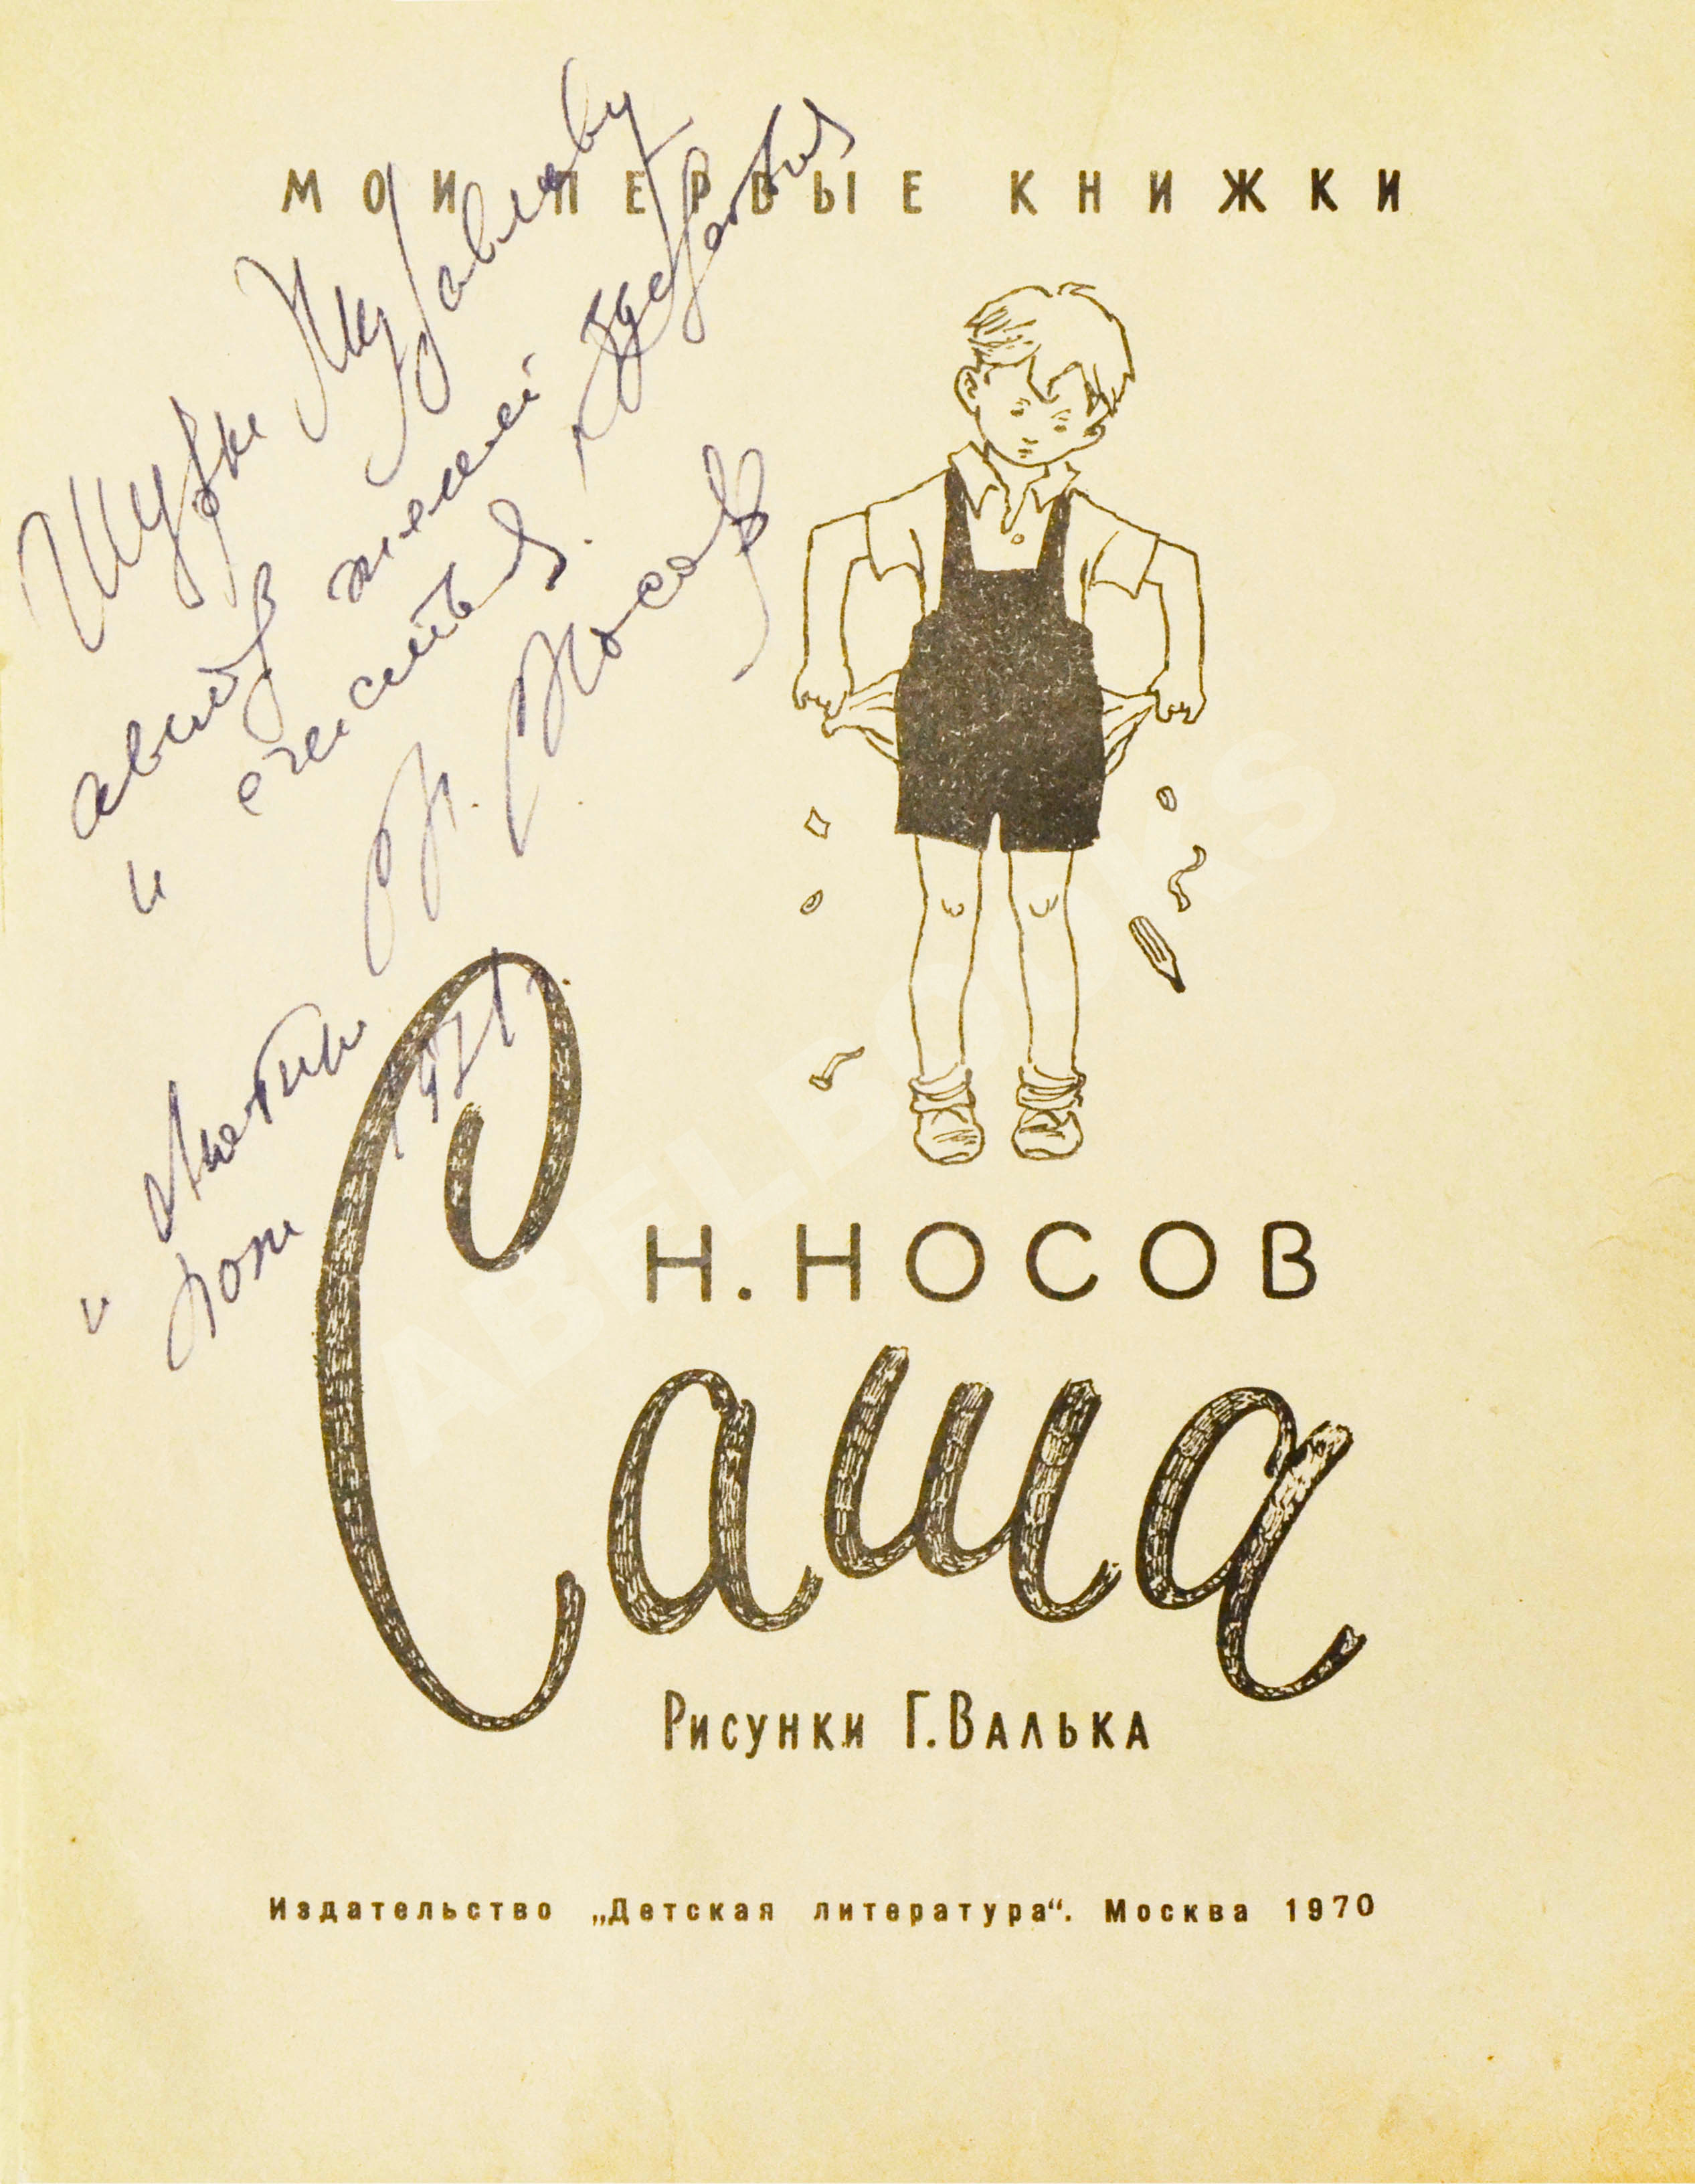 МОИ ПЕРВЫЕ КНИЖКИ
Шурке Журавлеву
автор
и счастья.
Н. Носов
1971 г.
Н. НОСОВ
Саша
Рисунки Г. Валька
Издательство „Детская литература“. Москва 1970
ABELBOOKS